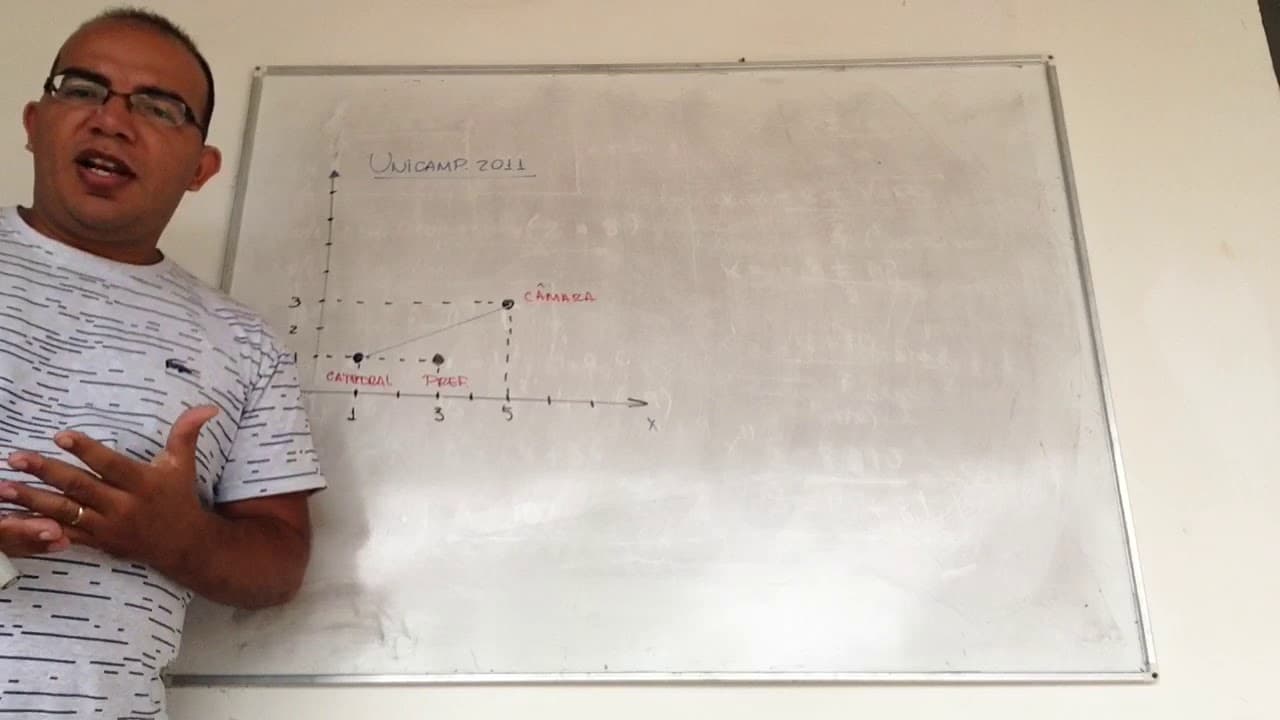 UNICAMP 2011
3
CÂMARA
2
1
CATEDRAL PREF.
1 3 5
X